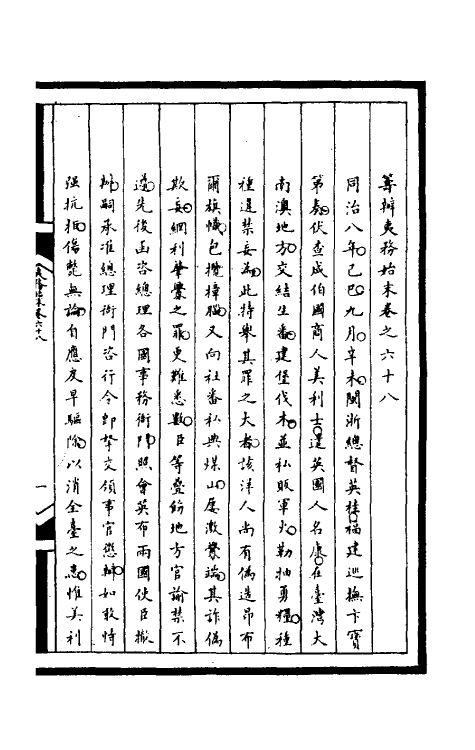 籌辦夷務始末卷之六十八
同治八年己巳九月辛未閩浙總督英桂福建巡撫卞寶
第奏伏查咸伯國商人美利士遣英國人名康在臺灣大
南澳地方交結生番建堡伐木並私販軍火勒抽勇糧種
種違禁妄為此特舉其罪之大者該洋人尚有偽造昂布
爾旗幟包攬樟腦又向社番私典煤山屢滋釁端其詐偽
欺妄網利肇釁之罪更難悉數臣等疊飭地方官諭禁不
遵先後函咨總理各國事務衙門照會英布兩國使臣撤
辦嗣承准總理衙門咨行令即拏交領事官懲辦如敢恃
强抗拒傷斃無論自應及早驅除以消全臺之患惟美利
夷務始末卷六十八
一